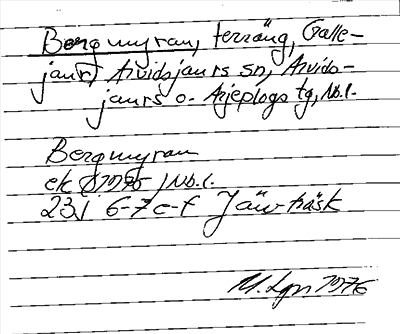 Bergmyran, terräng, Galle-
jaur, Arvidsjaurs sn, Arvids-
jaurs o. Arjeplogs tg, Nb.l.
Bergmyran
ek 1975, Nb.l.
23J 6-7 e-f Järvträsk
M. Lgn 1976